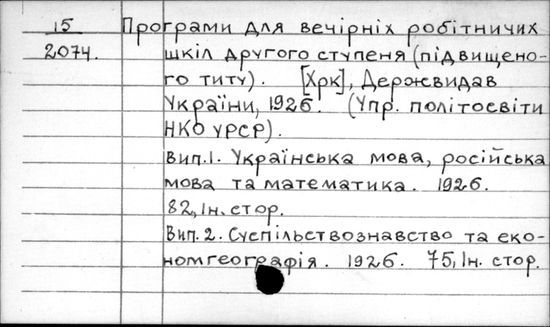 15 Програми для вечірніх робітничих
2074. шкіл другого ступеня (підвищено-
го титу). [Хрк], Держвидав
України, 1926. (Упр. політосвіти
НКО УРСР).
Вип.1. Українська мова, російська
мова та математика. 1926.
82, Ін. стор.
Вип. 2. Суспільствознавство та еко-
номгеографія. 1926. 75, Ін. стор.